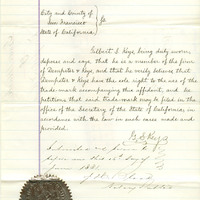 City and County of
San Francisco } ss
State of California
Gilbert S. Keys, being duly sworn
deposes and says, that he is a member of the firm
of Dempster & Keys, and that he verily believes that
Dempster & Keys has the sole right to the use of the
trade-mark accompanying this affidavit, and he
petitions that said trade-mark may be filed in the
office of the Secretary of the State of California, in
accordance with the law in such cases made and
provided.
G. S. Keys
Subscribed and sworn to
before me this day of